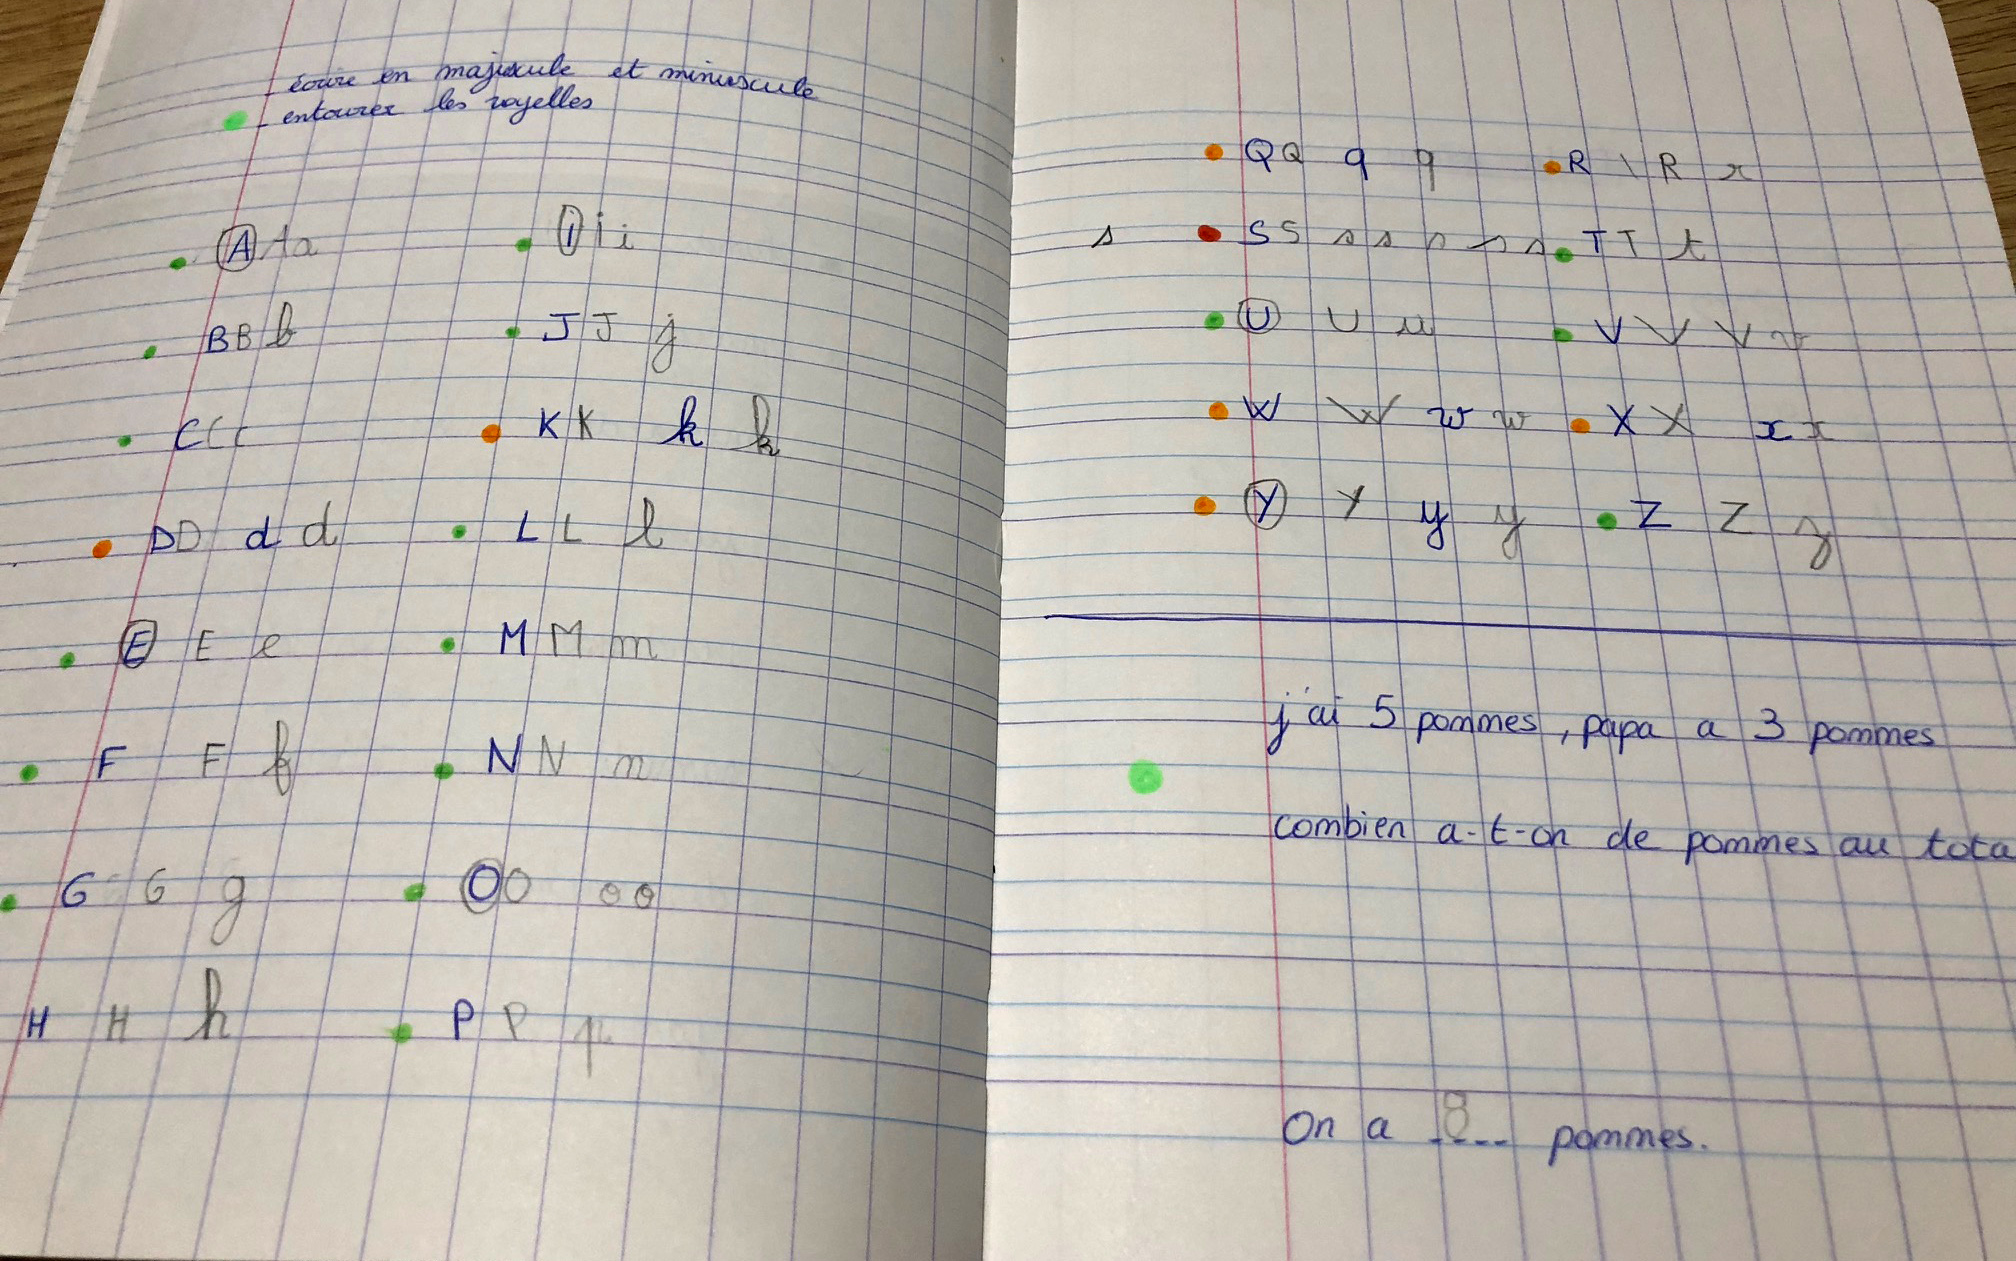 écrire en majuscule et minuscule
entourer les voyelles
A A a
B B b
C C c
D D d d
E E e
F F f
G G g
H H h
i i i
J J j
K K k k
L L l
M M m
N N n
O O o o
P P p
Q Q q q
R \ R r
s S S s s s s s
T T t
U U u
V V V v
W W w w
X X x x
Y Y y y
Z Z z
j'ai 5 pommes, papa a 3 pommes
combien a-t-on de pommes au tota
On a 8 pommes.